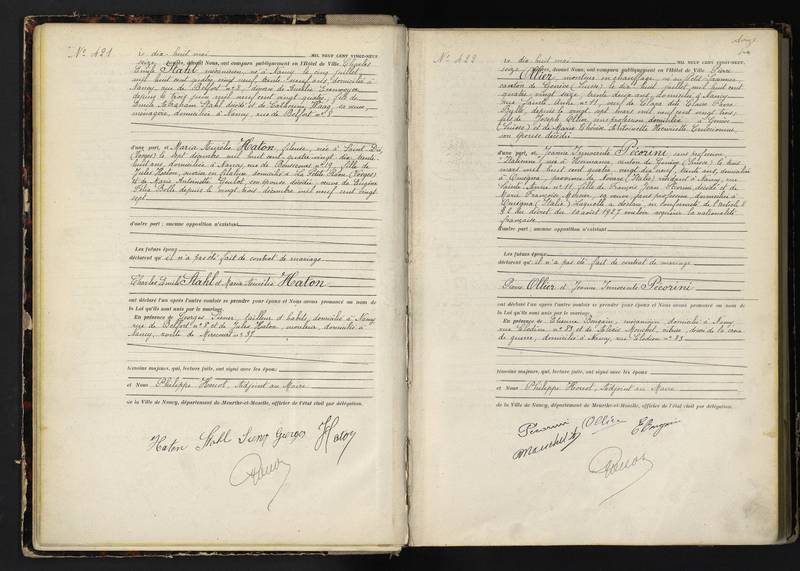 N° 421
Le dix huit mai MIL NEUF CENT VINGT-NEUF
seize heures, devant Nous, ont comparu publiquement en l'Hôtel de Ville, Charles
Emile Stahl, mécanicien, né à Nancy le cinq juillet
mil huit cent quatre vingt neuf, trente neuf ans, domicilié à
Nancy, rue de Belfort n° 8, divorcé de Aurélie
depuis le trois juin mil neuf cent vingt quatre, fils de
Emile Abraham Stahl décédé et de Catherine Haag, sa veuve,
ménagère, domiciliée à Nancy, rue de Belfort n° 8
d'une part, et Maria Aurélie Haton, fileuse, née à Saint Dié
(Vosges) le sept décembre mil huit cent quatre vingt dix, trente
huit ans, domiciliée à Nancy, rue de n° 19, fille de
Jules Haton, ouvrier en filature domicilié à La Petite Raon (Vosges)
et de Marie Antoinette son épouse décédée, veuve de Eugène
Félix Bolle depuis le vingt trois décembre mil neuf cent vingt
sept
d'autre part ; aucune opposition n'existant
Les futurs époux
déclarent qu'il n'a pas été fait de contrat de mariage
Charles Emile Stahl et Maria Aurélie Haton
ont déclaré l'un après l'autre vouloir se prendre pour époux et Nous avons prononcé au nom de
la Loi qu'ils sont unis par le mariage.
En présence de Georges tailleur d'habits, domicilié à Nancy
rue de Belfort n° 8 et de Jules Haton, mouleur, domicilié à
Nancy, route de Méréville n° 37
témoins majeurs, qui, lecture faite, ont signé avec les époux
et Nous Philippe Houot, Adjoint au Maire
de la Ville de Nancy, département de Meurthe-et-Moselle, officier de l'état civil par délégation.
Haton Stahl Georges Haton
Houot
N° 422
Le dix huit mai MIL NEUF CENT VINGT-NEUF
seize heures, devant Nous, ont comparu publiquement en l'Hôtel de Ville, Pierre
Ollier, monteur en chauffage, né au Petit Saconnex
canton de Genève (Suisse) le dix huit juillet mil huit cent
quatre vingt seize, trente deux ans, domicilié à Nancy
rue Sainte Anne n° 11, veuf de Clara
depuis le vingt sept mars mil neuf cent vingt trois,
fils de Joseph Ollier, sans profession domicilié à Genève
(Suisse) et de Marie Antoinette Henriette
son épouse décédée
d'une part, et Jeanne Innocente Pécorini, sans profession,
"Italienne", née à Hermance, canton de Genève (Suisse) le trois
mars mil huit cent quatre vingt dix neuf, trente ans, domiciliée
à province de (Italie) résidant à Nancy, rue
Sainte Anne n° 11, fille de François Jean Pécorini décédé et de
Marie Françoise sa veuve, sans profession, domiciliée à
(Italie). Laquelle a déclaré, en conformité de l'article 8
§ 2 du décret du 10 août 1927 vouloir acquérir la nationalité
française
d'autre part ; aucune opposition n'existant
Les futurs époux
déclarent qu'il n'a pas été fait de contrat de mariage
Pierre Ollier et Jeanne Innocente Pécorini
ont déclaré l'un après l'autre vouloir se prendre pour époux et Nous avons prononcé au nom de
la Loi qu'ils sont unis par le mariage.
En présence de Etienne Bougain, mécanicien, domicilié à Nancy
rue n° 89 et de décoré de la croix
de guerre, domiciliés à Nancy, rue n° 83
témoins majeurs, qui, lecture faite, ont signé avec les époux
et Nous Philippe Houot, Adjoint au Maire
de la Ville de Nancy, département de Meurthe-et-Moselle, officier de l'état civil par délégation.
Pécorini Ollier E Bougain
Houot